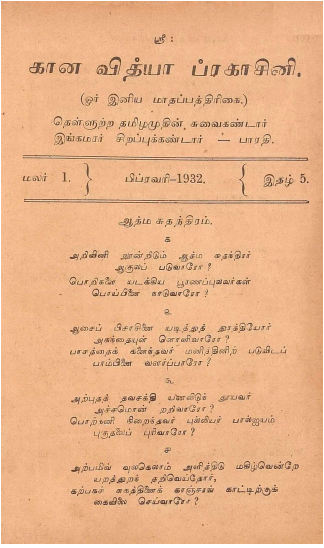 ஸ்ரீ :
கான வித்யா ப்ரகாசினி.
(ஓர் இனிய மாதப்பத்திரிகை.)
தெள்ளுற்ற தமிழமுதின் சுவைகண்டார்
இங்கமரர் சிறப்புக்கண்டார் — பாரதி.
மலர் 1. } பிப்ரவரி–1932. { இதழ் 5.
ஆத்ம சுதந்திரம்.
க
அறிவினி லூன்றிடும் ஆத்ம சுதந்திரர்
ஆகுலப் படுவாரோ ?
பொறிகளை யடக்கிய பூரணப்புலவர்கள்
பொய்யினை நாடுவாரோ ?
உ
ஆசைப் பிசாசினை யடித்துத் துரத்தியோர்
அகந்தையுள் ளொளிவாரோ ?
பாசத்தைக் களைந்தவர் மனத்தினிற் படுவிடப்
பாம்பினை வளர்ப்பாரோ ?
௩
அற்புதத் தவசக்தி யணவிடுந் தூயவர்
அச்சமொன் றறிவாரோ ?
பொற்கனி நிறைந்தவர் புல்லியர் பாலையம்
புகுதலைப் புரிவாரோ ?
ச
அற்பமிவ் வுலகெலாம் அளித்திடு மகிழ்வென்றே
யறத்துறந் தறிவெய்தோர்,
கற்பகச் சுகத்தினைக் காஞ்சரங் காட்டிற்குக்
கைவிலை செய்வாரோ ?